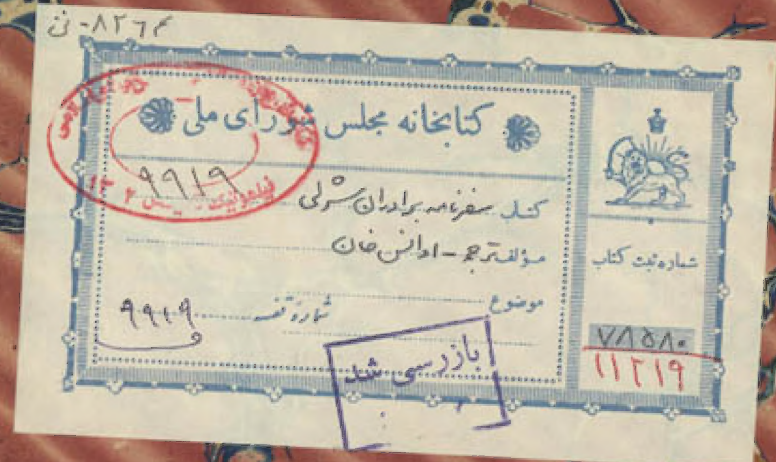 ۸۲۶۴ - ن
کتابخانه مجلس شورای ملی
۹۹۱۹
کتاب سفرنامه برادران شرلی
مؤلف ترجمه - اوانس خان
موضوع
شماره قفسه ۹۹۱۹
بازرسی شد
شماره ثبت کتاب
۷۸۵۸۰
۱۱۲۱۹